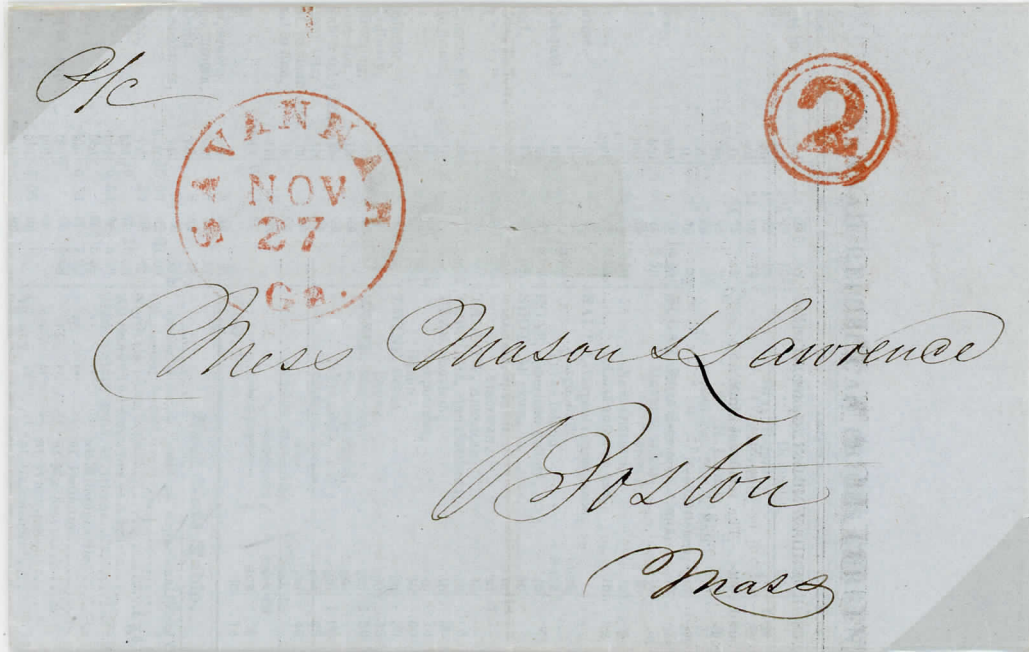 P/c
2
SAVANNAH
NOV
27
Ga.
Mess Mason & Lawrence
Boston
Mass